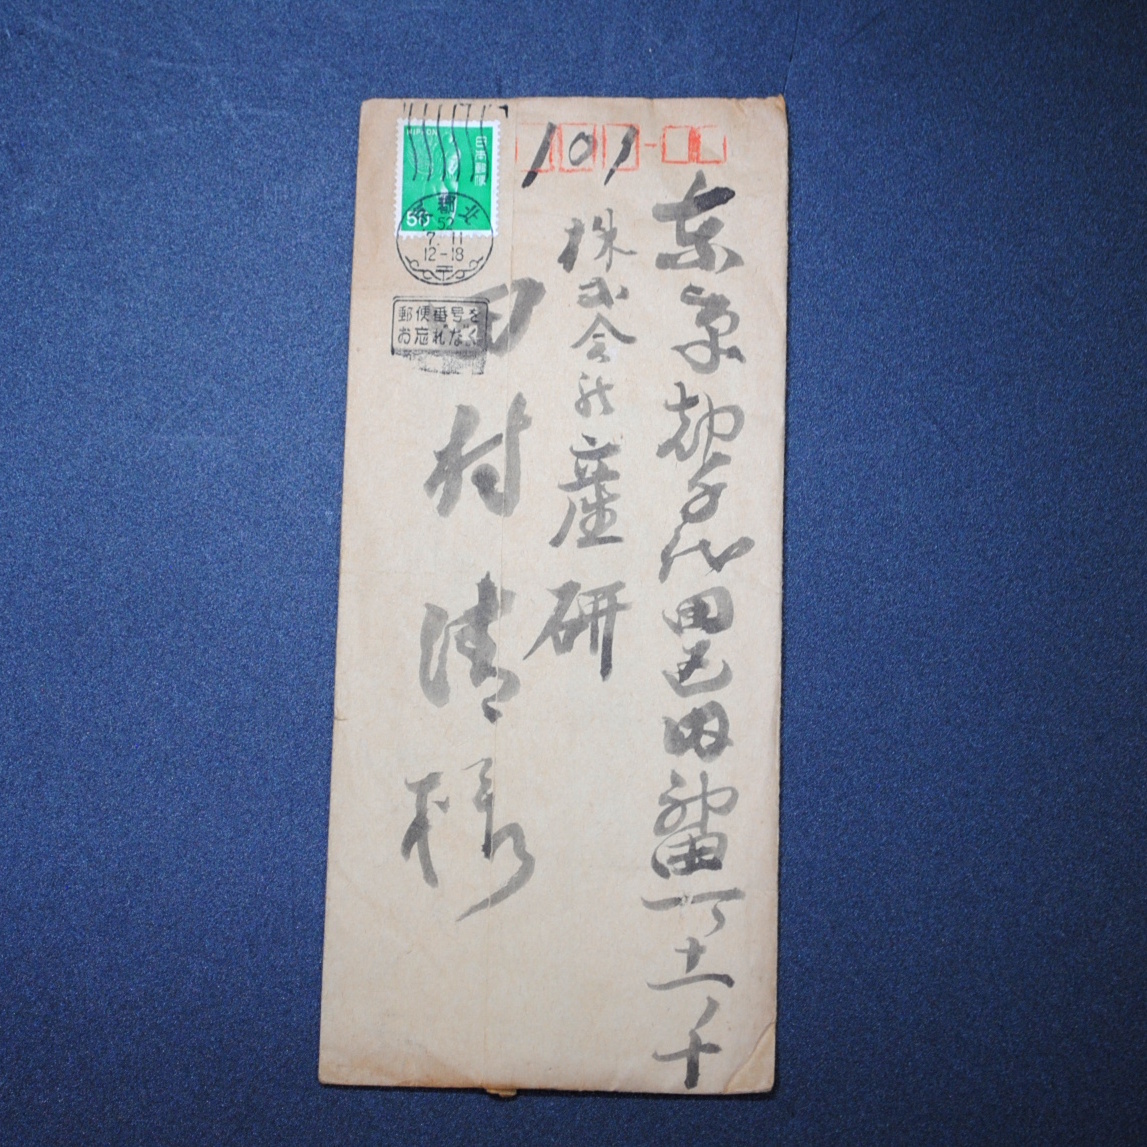 101
東京都千代田区内神田一丁十一ノ十
株式会社産研
田村清様
NIPPON
日本郵便
50
52
7. 11
12-18
郵便番号を
お忘れなく